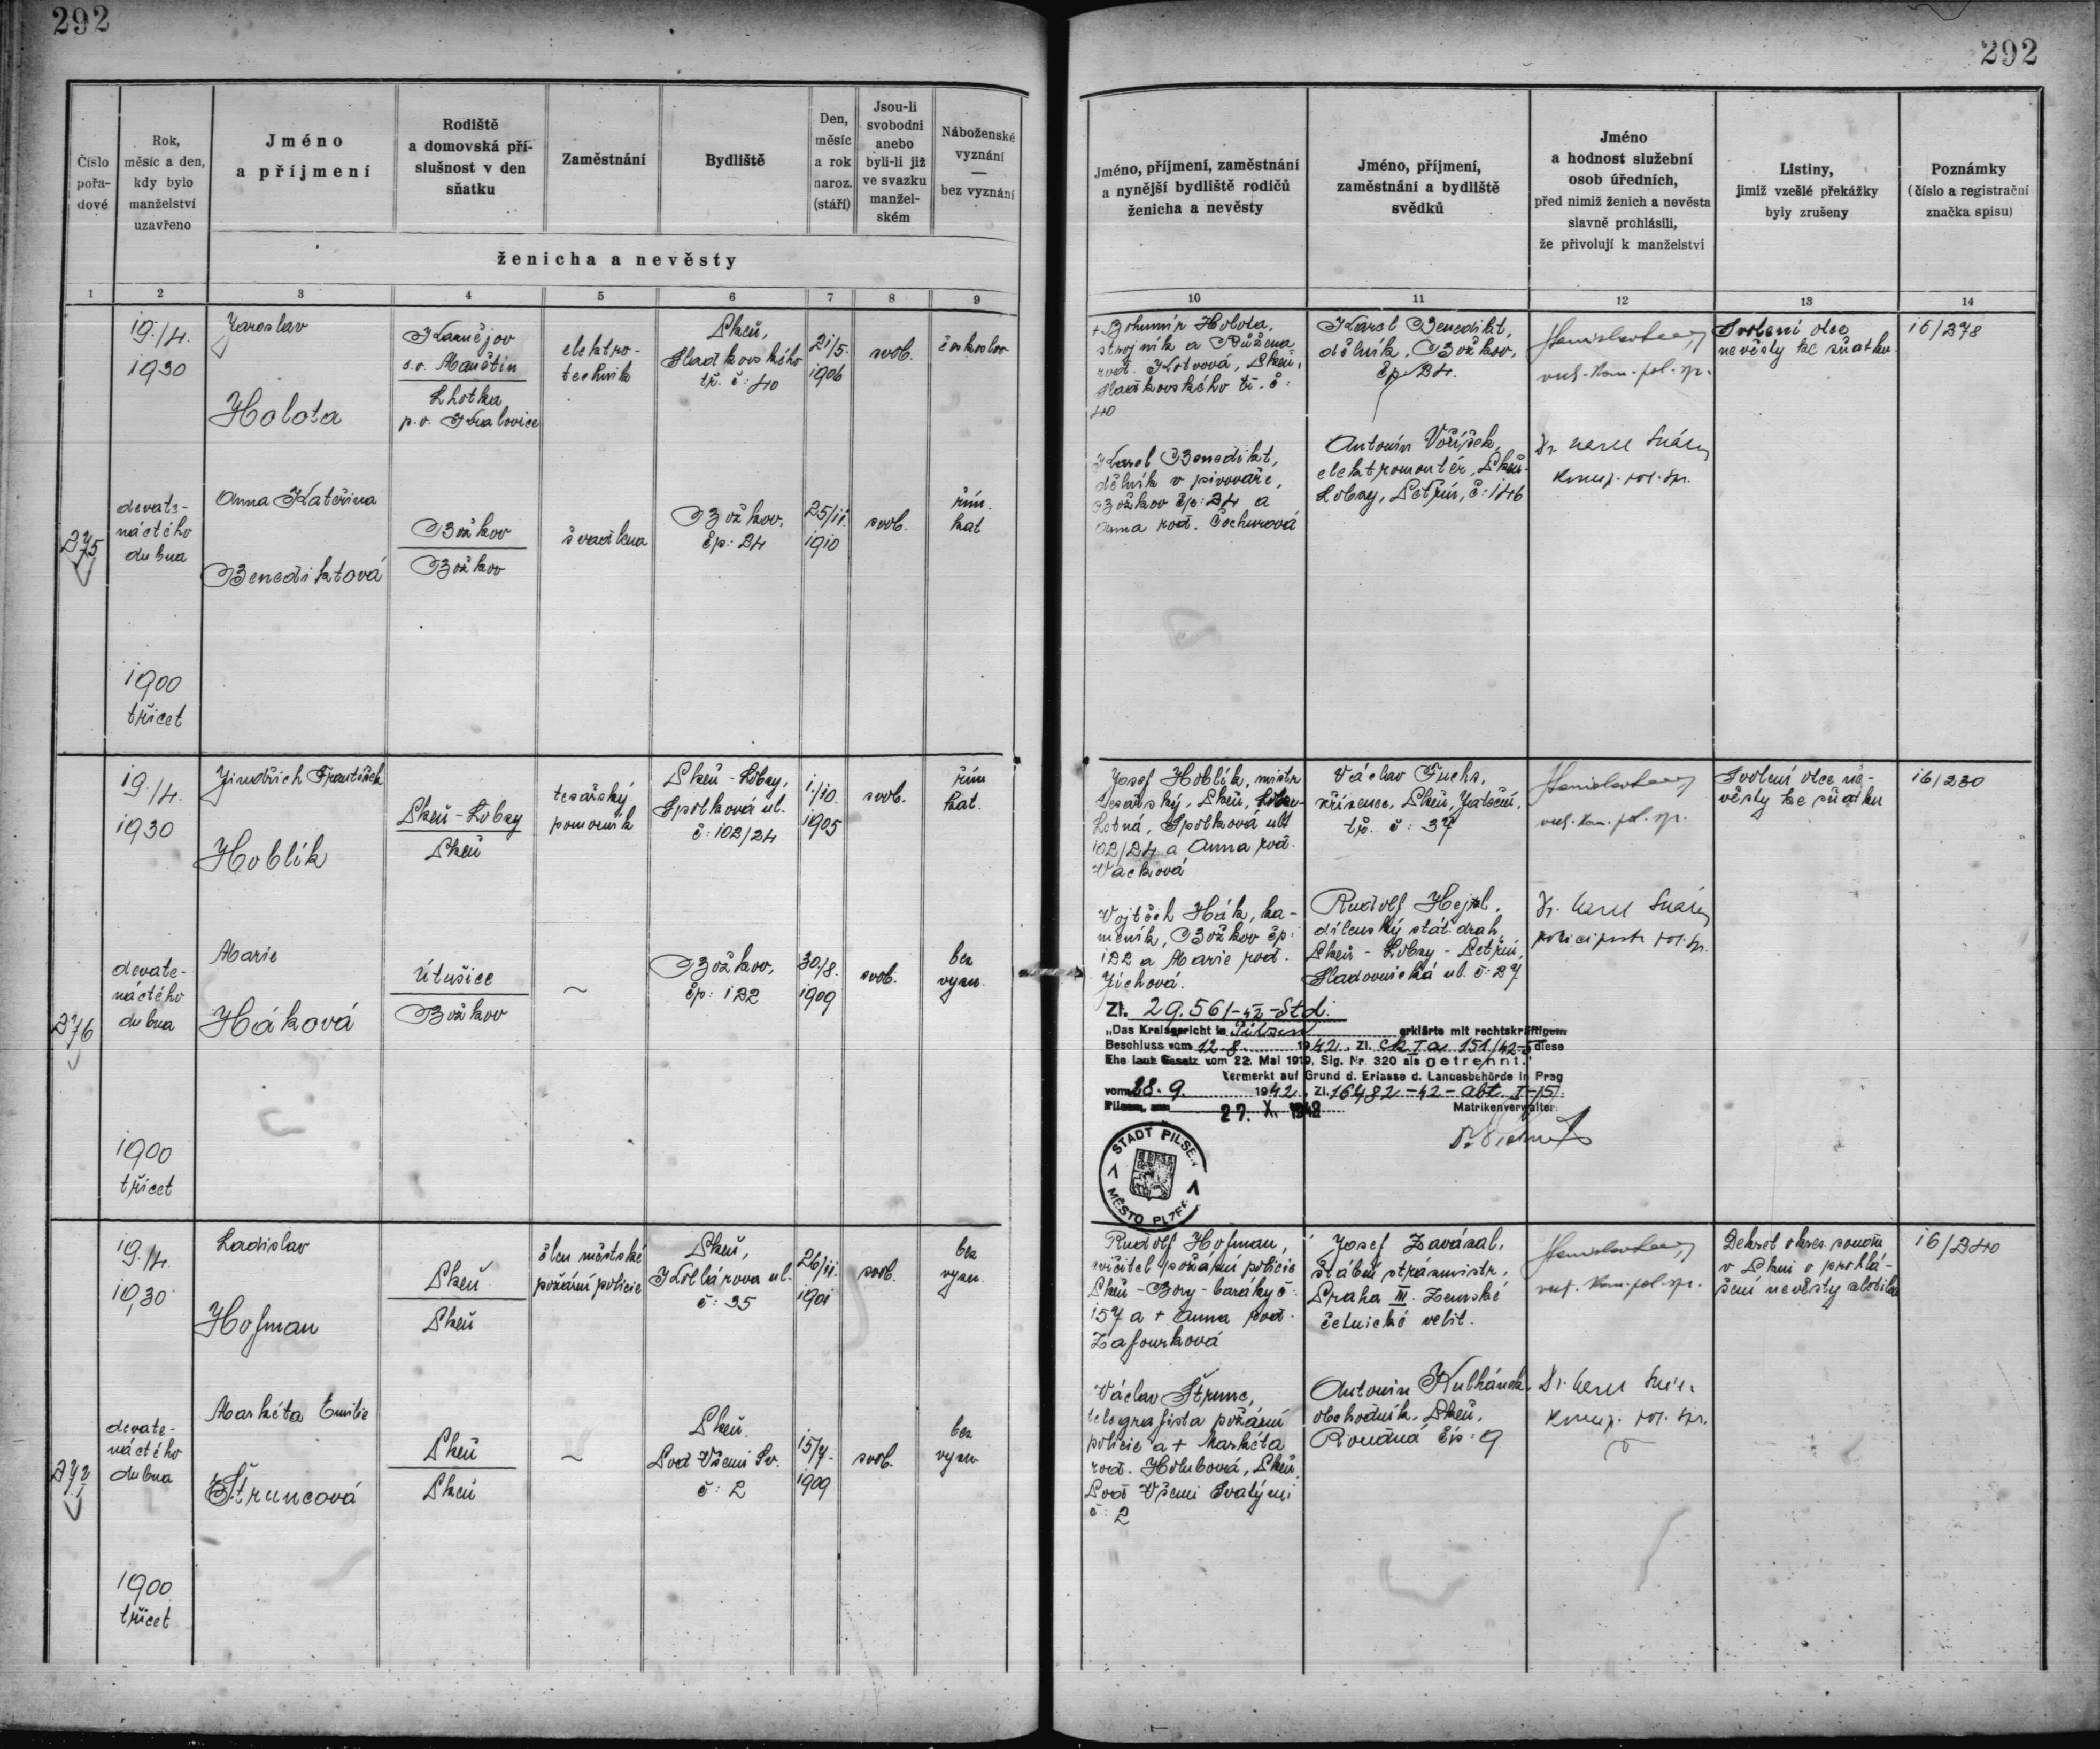 292
292
Číslo
pořa-
dové
Rok,
měsíc a den,
kdy bylo
manželství
uzavřeno
Jméno
a příjmení
Rodiště
a domovská pří-
slušnost v den
sňatku
Zaměstnání
Bydliště
Den,
měsíc
a rok
naroz.
(stáří)
Jsou-li
svobodni
anebo
byli-li již
ve svazku
manžel-
ském
Náboženské
vyznání
—
bez vyznání
ženicha a nevěsty
Jméno, příjmení, zaměstnání
a nynější bydliště rodičů
ženicha a nevěsty
Jméno, příjmení,
zaměstnání a bydliště
svědků
Jméno
a hodnost služební
osob úředních,
před nimiž ženich a nevěsta
slavně prohlásili,
že přivolují k manželství
Listiny,
jimiž vzešlé překážky
byly zrušeny
Poznámky
(číslo a registrační
značka spisu)
1 2 3 4 5 6 7 8 9
10 11 12 13 14
275
19./4.
1930
devate-
náctého
dubna
1900
třicet
Jaroslav
Holota
Kaznějov
s.o. Manětín
Lhotka
p.o. Kralovice
elektro-
technik
Plzeň,
Sladkovského
tř. č: 40
21/5.
1906
svob.
českoslov.
Anna Kateřina
Benediktová
Božkov
Božkov
švadlena
Božkov,
čp: 24
25/11.
1910
svob.
řím.
kat
+ Bohumír Holota,
strojník a Růžena
rod. Kotvová, Plzeň,
Sladkovského tř. č:
40
Karel Benedikt,
dělník v pivováře,
Božkov čp: 24 a
Anna rod. Čechurová
Karel Benedikt,
dělník, Božkov,
čp. 24.
Antonín Voříšek,
elektromontér, Plzeň-
Lobzy, Petřín, č: 146
vrch. kom. pol. spr.
Dr. Karel
pol. spr.
Svolení otce
nevěsty ke sňatku
16/278
276
19./4.
1930
devate-
náctého
dubna
1900
třicet
Jindřich František
Hoblík
Plzeň - Lobzy
Plzeň
tesařský
pomocník
Plzeň - Lobzy,
Spolková ul.
č: 102/24
1./10.
1905
svob.
řím
kat.
Marie
Háková
Útušice
Božkov
~
Božkov,
čp: 122
30/8.
1909
svob.
bez
vyzn.
Josef Hoblík, mistr
tesařský, Plzeň,
Letná, Spolková ul.
102/24 a Anna rod.
Vacková
Vojtěch Hák, ka-
meník, Božkov čp:
122 a Marie rod.
Jíchová.
Václav Fuchs,
zřízenec, Plzeň, Jateční
tř. č: 37
Rudolf Hejzl,
dílenský stát. drah,
Plzeň - Lobzy - Petřín,
Sladovnická ul. č: 27
vrch. kom. pol. spr.
Dr. Karel
pol. spr.
Svolení otce ne-
věsty ke sňatku
16/230
Zl. 29.561-42-Std.
„Das Kreisgericht in Pilsen erklärte mit rechtskräftigem
Beschluss vom 12.8. 1942, Zl. Ck I a 151/42-5 diese
Ehe laut Gesetz vom 22. Mai 1919, Slg. Nr. 320 als getrennt."
Vermerkt auf Grund d. Erlasse d. Landesbehörde in Prag
vom 28. 9. 1942, Zl. 16482-42-abt. I-15.
Pilsen, am 27. X. 1942
Matrikenverwalter:
STADT PILSEN
MĚSTO PLZEŇ
277
19./4.
1930
devate-
náctého
dubna
1900
třicet
Ladislav
Hofman
Plzeň
Plzeň
člen městské
požární policie
Plzeň,
Kollárova ul.
č: 35
26/11.
1901
svob.
bez
vyzn.
Markéta Emilie
Štruncová
Plzeň
Plzeň
~
Plzeň.
Pod Všemi Sv.
č: 2
15/7.
1909
svob.
bez
vyzn.
Rudolf Hofman,
cvičitel požární policie
Plzeň - Bory - baráky č:
157 a + Anna rod.
Zafourková
Václav Štrunc,
telegrafista požární
policie a + Markéta
rod. Holubová, Plzeň,
Pod Všemi Svatými
č: 2
Josef Zavázal,
štábní strážmistr,
Praha III. Zemské
četnické velit.
Antonín Kulhánek,
obchodník, Plzeň,
Roudná čp: 9
vrch. kom. pol. spr.
Dr. Karel
pol. spr.
Dekret okres. soudu
v Plzni o prohlá-
šení nevěsty
16/240